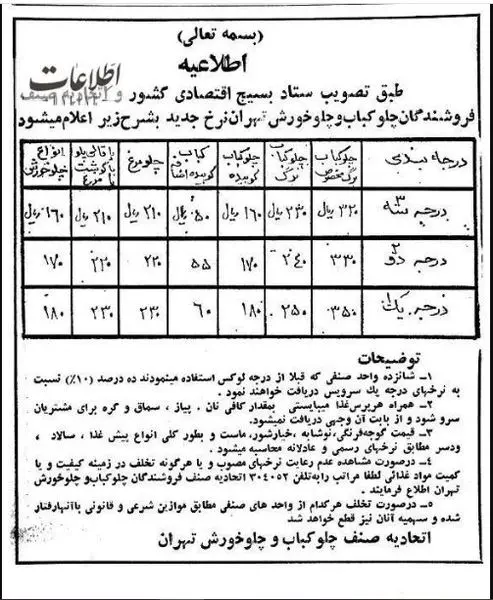 (بسمه تعالی)
اطلاعیه
اطلاعات
طبق تصویب ستاد بسیج اقتصادی کشور و اتحادیه صنف
فروشندگان چلوکباب و چلوخورش تهران نرخ جدید بشرح زیر اعلام میشود
درجه صنفی چلوکباب برگ مخصوص چلوکباب برگ چلوکباب کوبیده کباب کوبیده اضافه چلومرغ باقالی پلو با گوشت یا مرغ انواع چلوخورش
درجه ۳ سه ۳۲۰ ریال ۲۳۰ ریال ۱۶۰ ریال ۵۰ ریال ۲۱۰ ریال ۲۱۰ ریال ۱۶۰ ریال
درجه ۲ دو ۳۳۰ ۲۴۰ ۱۷۰ ۵۵ ۲۲۰ ۲۲۰ ۱۷۰
درجه یک ۱ ۳۵۰ ۲۵۰ ۱۸۰ ۶۰ ۲۳۰ ۲۳۰ ۱۸۰
توضیحات
۱ــ شانزده واحد صنفی که قبلا از درجه لوکس استفاده مینمودند ده درصد (۱۰٪) نسبت
به نرخهای درجه یك سرویس دریافت خواهند نمود .
۲ــ همراه هرپرس غذا میبایستی بمقدار کافی نان . پیاز ، سماق و کره برای مشتریان
سرو شود و از بابت آن وجهی دریافت نمیشود.
۳ــ قیمت گوجه فرنگی، نوشابه ،خیارشور، ماست و بطور کلی انواع پیش غذا ، سالاد ،
ودسر مطابق نرخهای رسمی و عادلانه محاسبه میشود .
۴ــ درصورت مشاهده عدم رعایت نرخهای مصوب و یا هرگونه تخلف در زمینه کیفیت و یا
کمیت مواد غذائی لطفا مراتب را به تلفن ۳۰۴۰۵۲ اتحادیه صنف فروشندگان چلوکباب و چلوخورش
تهران اطلاع فرمایند .
۵ــ درصورت تخلف هرکدام از واحد های صنفی مطابق موازین شرعی و قانونی با آنهارفتار
شده و سهمیه آنان نیز قطع خواهد شد
اتحادیه صنف چلوکباب و چلوخورش تهران